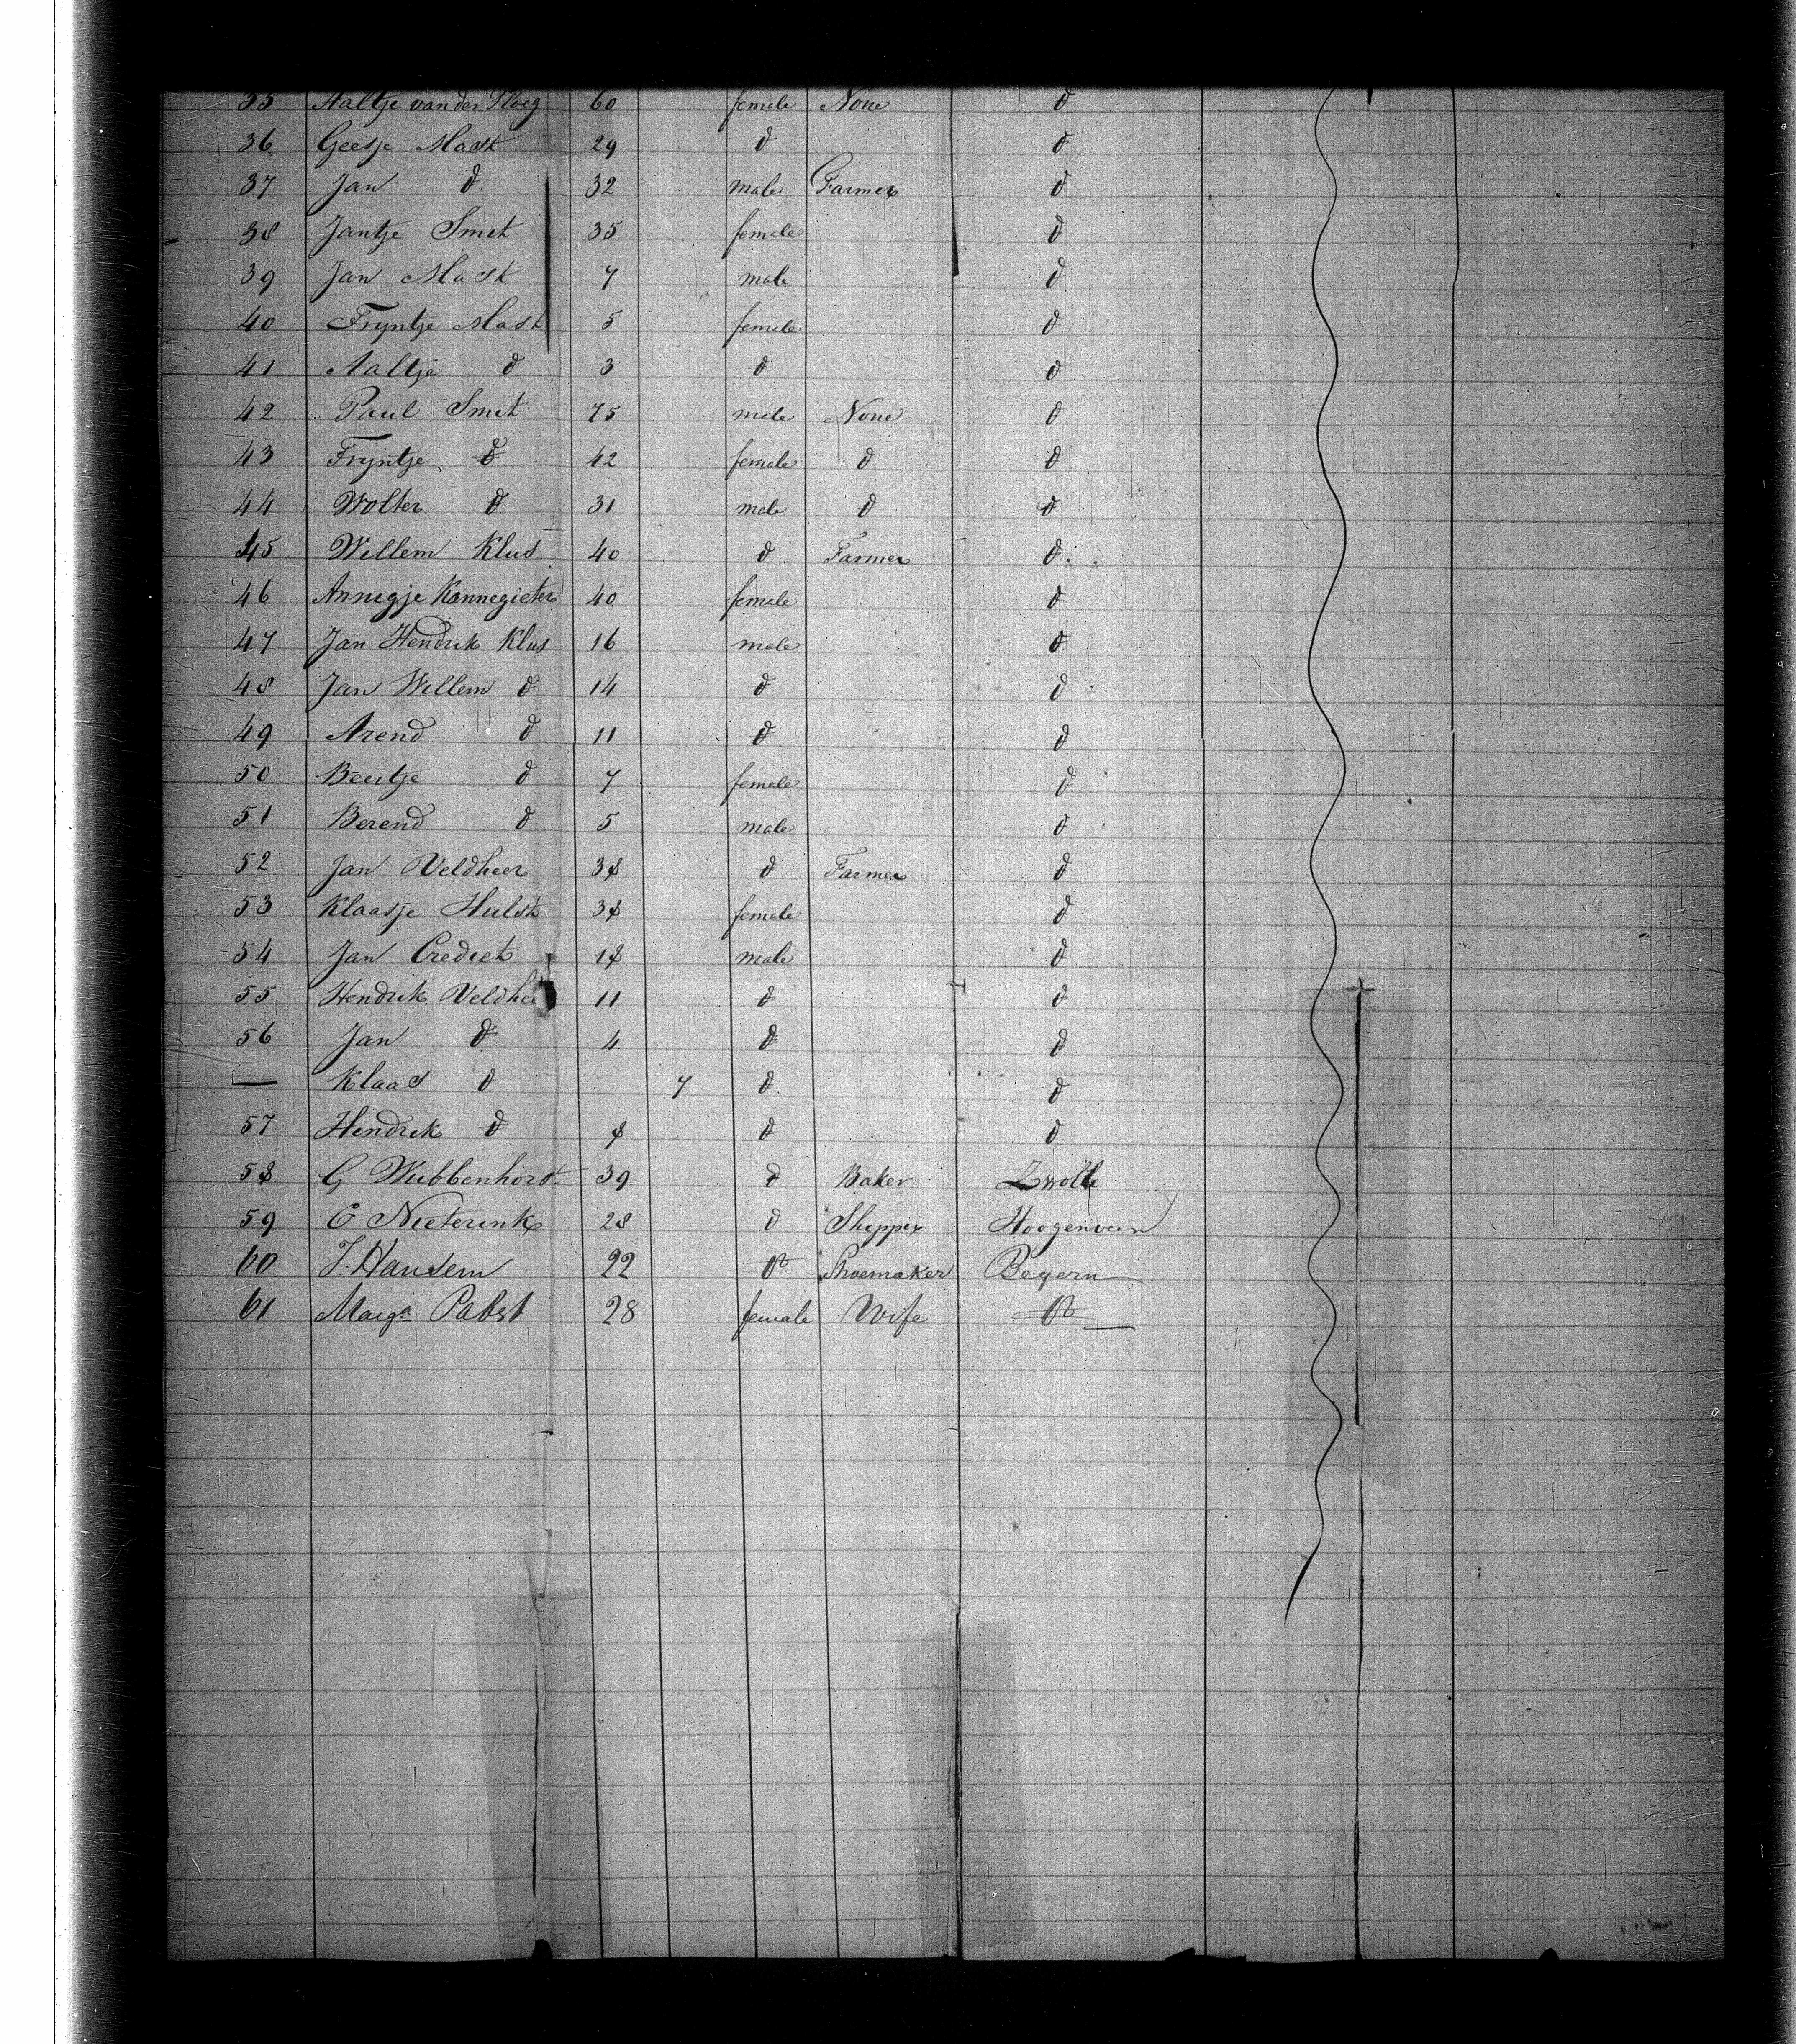 35 Aaltje van der Ploeg 60 female None d
36 Geesje Mast 29 d d
37 Jan d 32 male Farmer d
38 Jantje Smit 35 female d
39 Jan Mast 7 male d
40 Fryntje Mast 5 female d
41 Aaltje d 3 d d
42 Paul Smit 75 male None d
43 Fryntje d 42 female d d
44 Wolter d 31 male d d
45 Willem Klus 40 d Farmer d
46 Annigje Kannegieter 40 female d
47 Jan Hendrik Klus 16 male d
48 Jan Willem d 14 d d
49 Arend d 11 d d
50 Beertje d 7 female d
51 Berend d 5 male d
52 Jan Veldheer 38 d Farmer d
53 Klaasje Hulst 38 female d
54 Jan Crediet 18 male d
55 Hendrik Veldhe 11 d d
56 Jan d 4 d d
— Klaas d 7 d d
57 Hendrik d 8 d d
58 G Wubbenhorst 39 d Baker Zwolle
59 C Nieterink 28 d Shipper Hoogenveen
60 J. Hansem 22 d Shoemaker Beyern
61 Marga Pabst 28 female Wife d